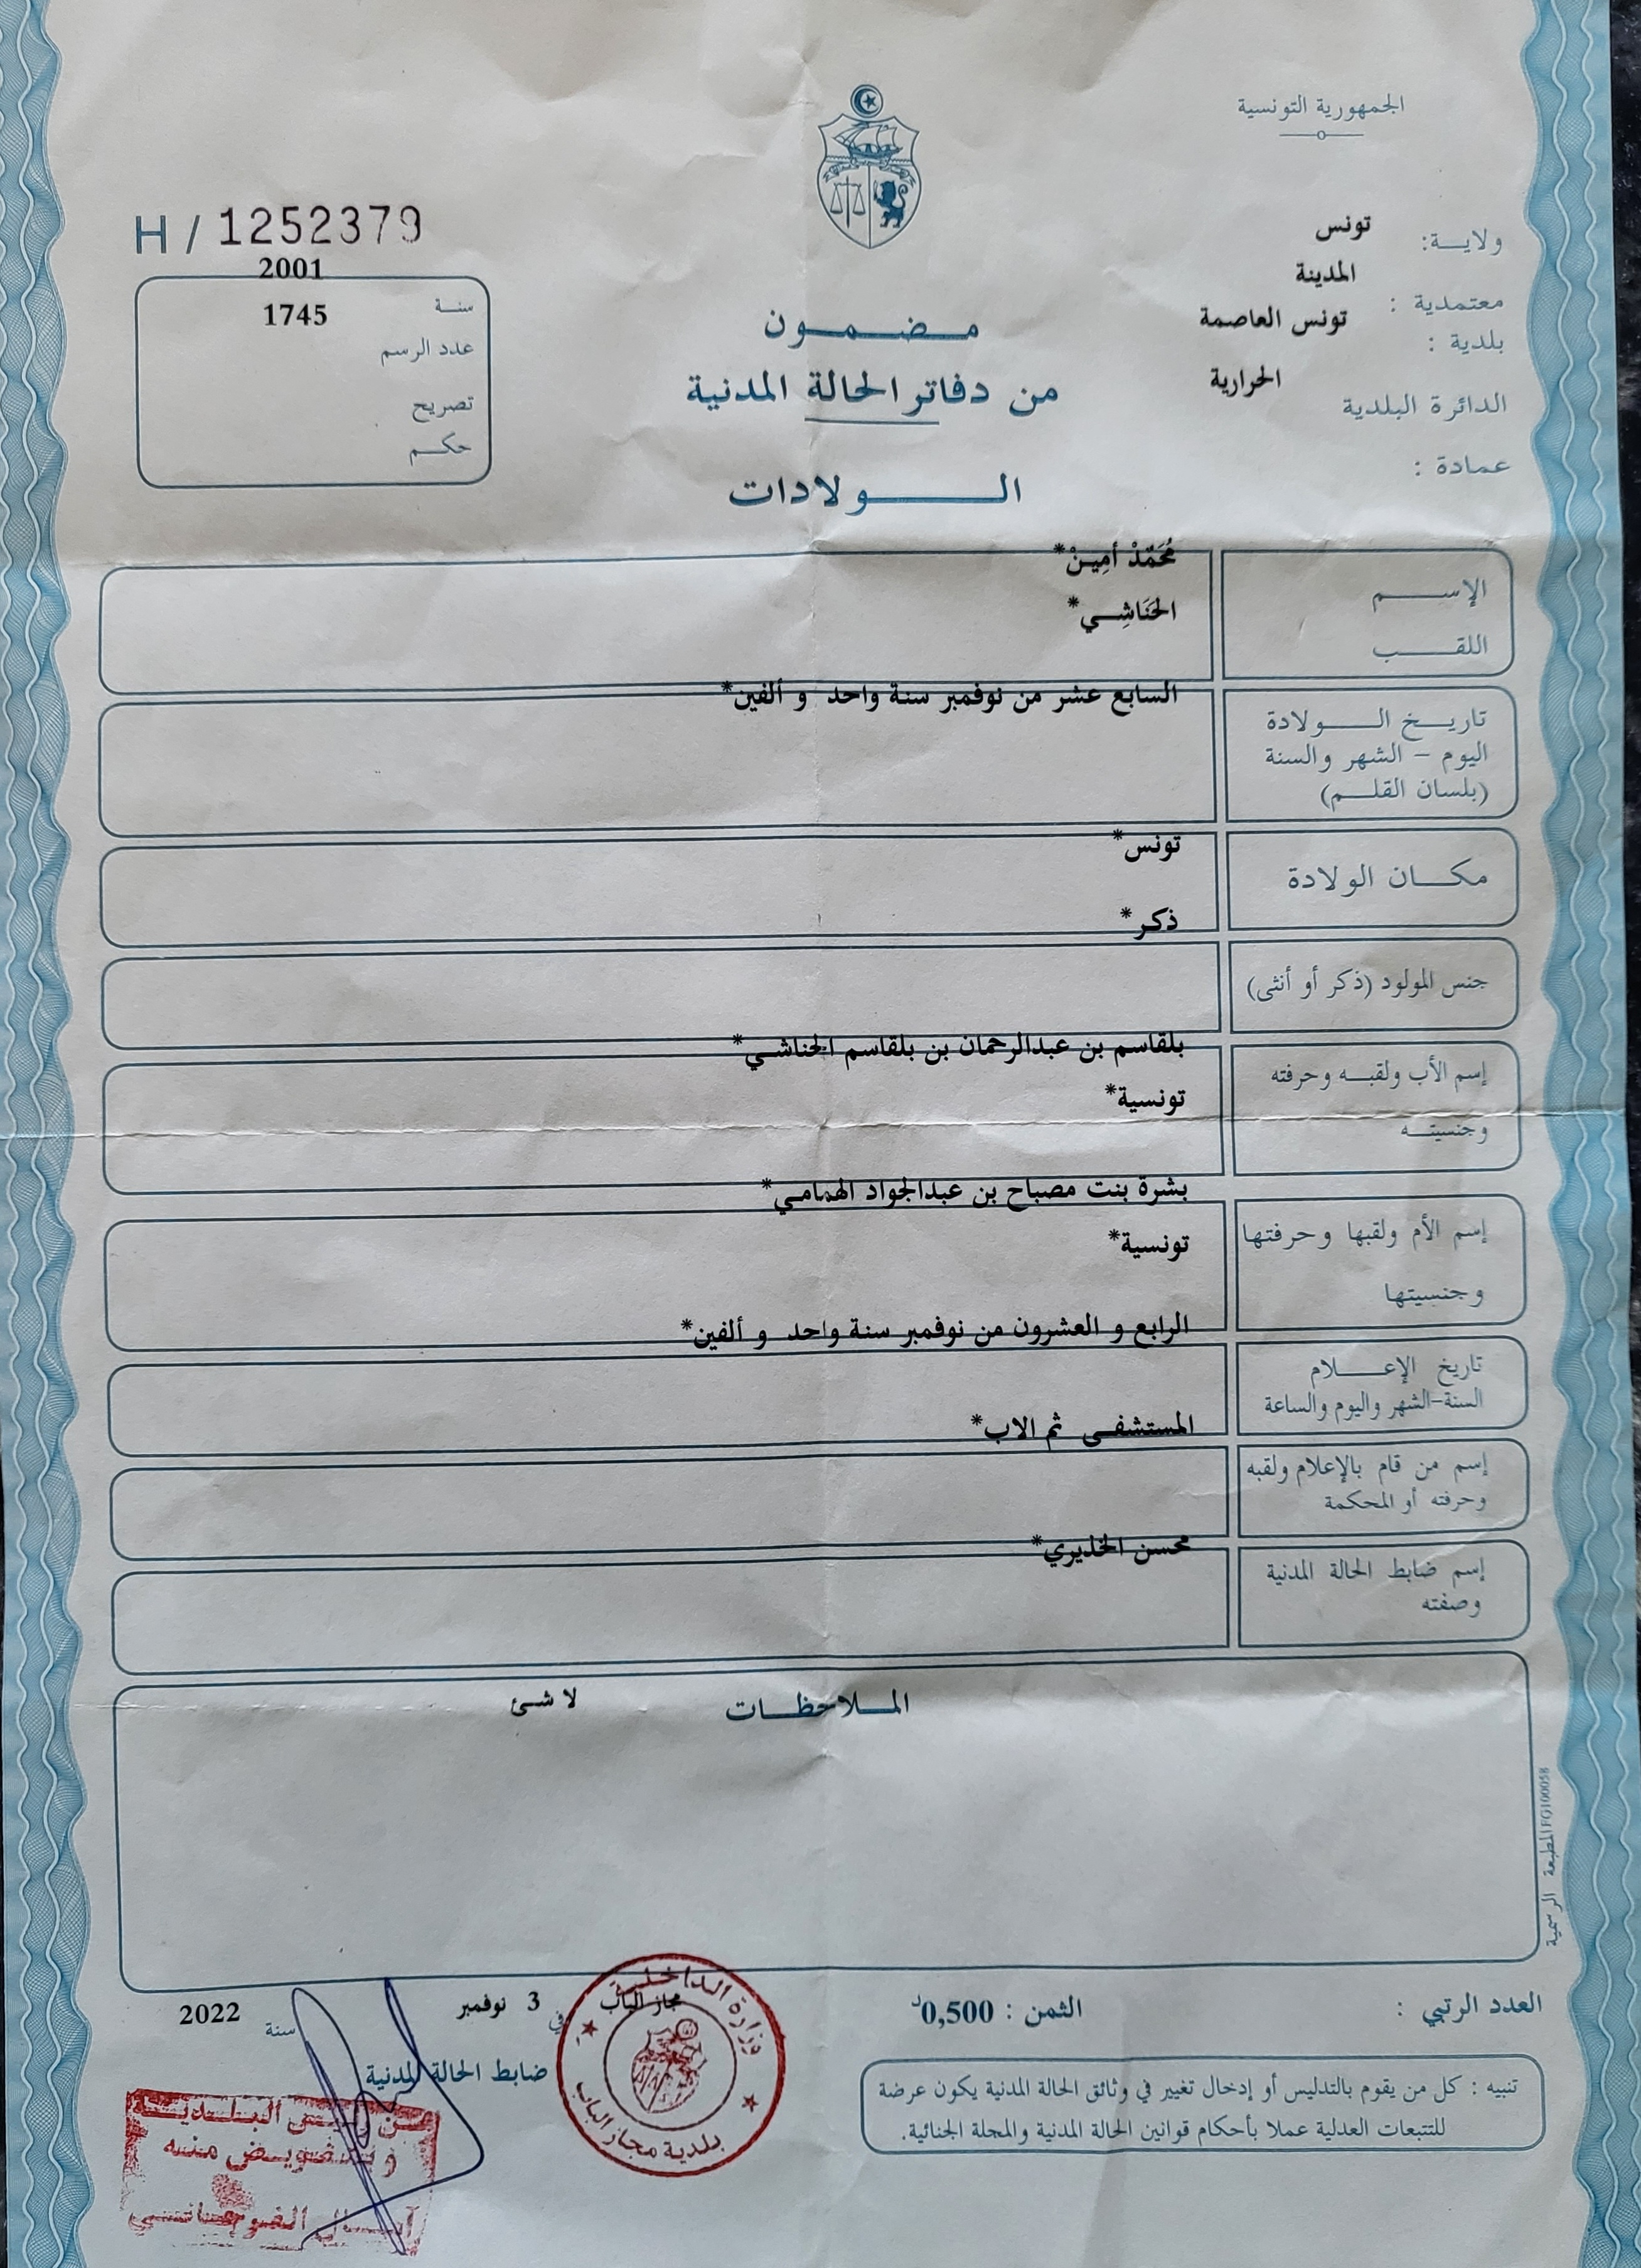 الجمهورية التونسية
ولاية: تونس
معتمدية : المدينة
بلدية : تونس العاصمة
الدائرة البلدية الحرارية
عمادة :
H / 1252379
سنة 2001
عدد الرسم 1745
تصريح
حكم
مضمون
من دفاتر الحالة المدنية
الولادات
الإسم مُحَمّدْ أمِينْ*
اللقب الحَنَاشِي*
تاريخ الولادة السابع عشر من نوفمبر سنة واحد و ألفين*
اليوم - الشهر والسنة
(بلسان القلم)
مكان الولادة تونس*
جنس المولود (ذكر أو أنثى) ذكر*
إسم الأب ولقبه وحرفته بلقاسم بن عبدالرحمان بن بلقاسم الحناشي*
وجنسيته تونسية*
إسم الأم ولقبها وحرفتها بشرة بنت مصباح بن عبدالجواد الهمامي*
وجنسيتها تونسية*
تاريخ الإعلام الرابع و العشرون من نوفمبر سنة واحد و ألفين*
السنة-الشهر واليوم والساعة
إسم من قام بالإعلام ولقبه المستشفى ثم الاب*
وحرفته أو المحكمة
إسم ضابط الحالة المدنية محسن الخذيري*
وصفته
الملاحظات لا شئ
المطبعة الرسمية FG100058
العدد الرتبي :
الثمن : 0,500د
مجاز الباب في 3 نوفمبر سنة 2022
ضابط الحالة المدنية
وزارة الداخلية
بلدية مجاز الباب
عن رئيس البلدية
وبتفويض منه
تنبيه : كل من يقوم بالتدليس أو إدخال تغيير في وثائق الحالة المدنية يكون عرضة
للتتبعات العدلية عملا بأحكام قوانين الحالة المدنية والمجلة الجنائية.